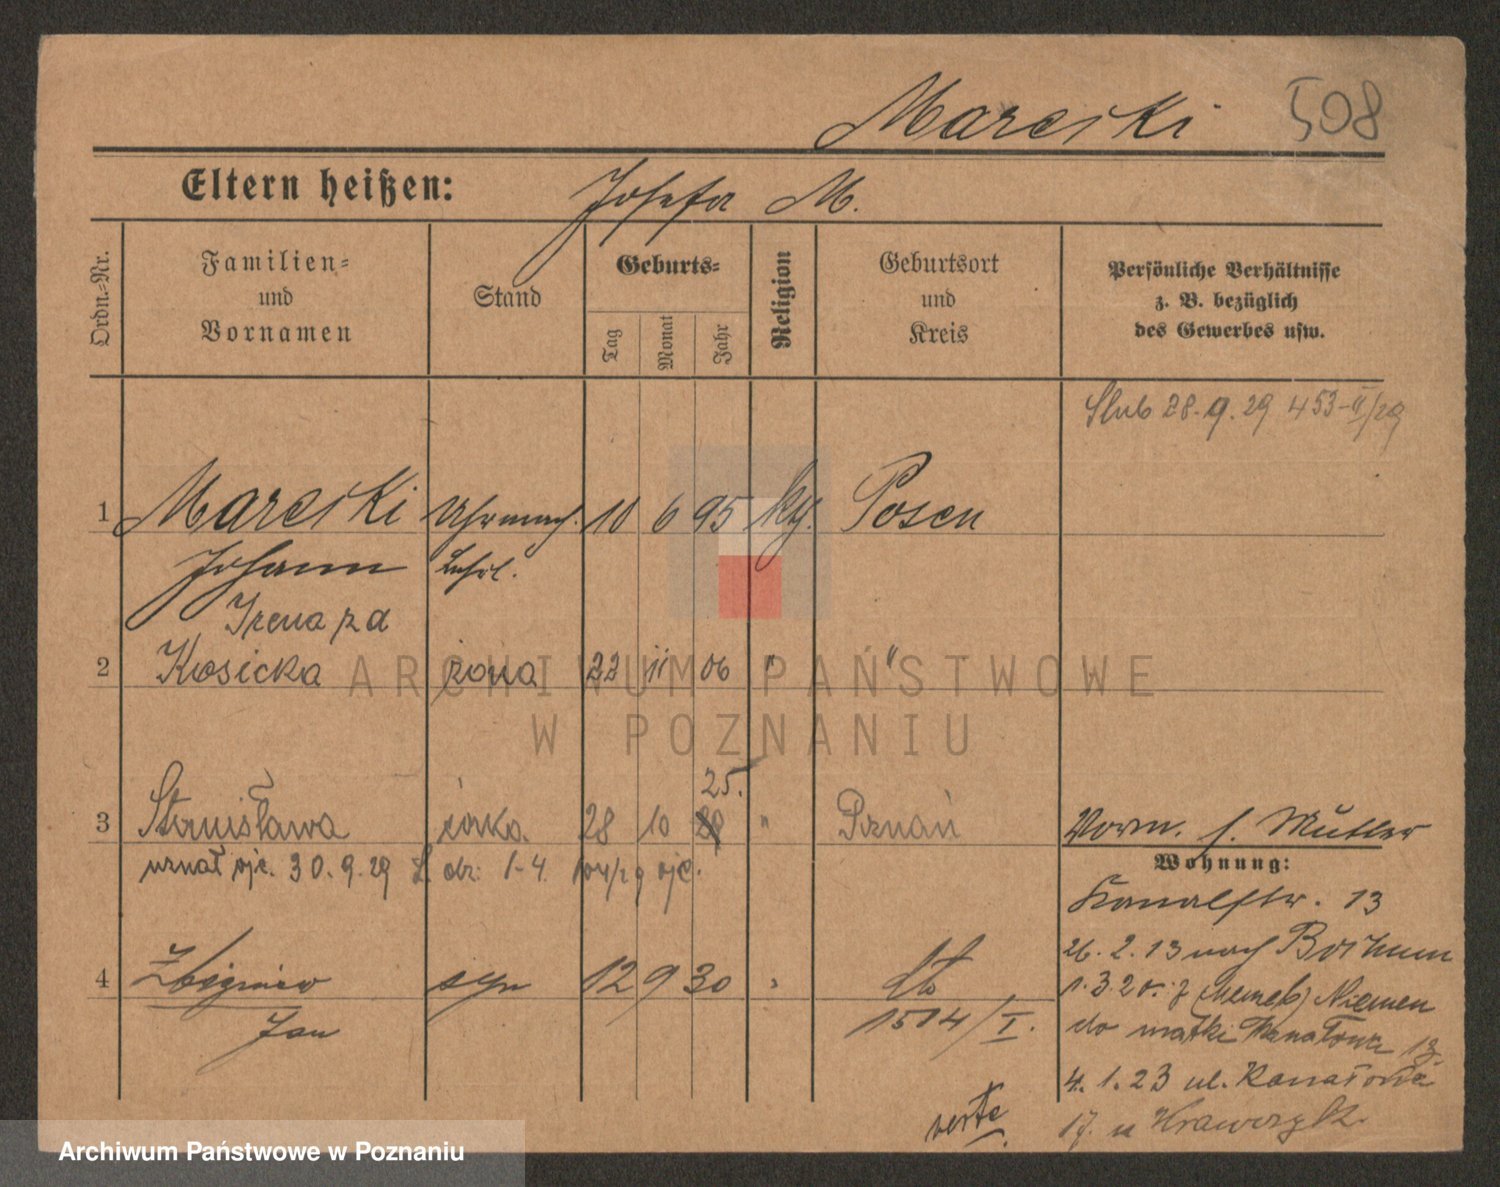 Marciski 508
Eltern heißen: Josefa M.
Ordn.-Nr.
Familien- und Vornamen
Stand
Geburts-
Tag
Monat
Jahr
Religion
Geburtsort und Kreis
Persönliche Verhältnisse
z. B. bezüglich
des Gewerbes usw.
Ślub 28.9.29 453-II/29
1 Marciski Uhrmach. 10 6 95 kth. Posen
Johann Lehrl.
Irena z d
2 Kosicka żona 22 11 06 " "
25.
3 Stanisława córka 28 10 " Poznań
Vorm. s. Mutter
uznał ojc. 30.9.29 1-4. 104/29 ojc.
Wohnung:
Kanalstr. 13
26.2.13 nach Bochum
4 Zbigniew syn 12 9 30 "
1.3.20. z (Memel) Niemen
Jan 1514/I.
do matki Kanałowa 13.
4.1.23 ul. Kanałowa
17. u
verte
ARCHIWUM PAŃSTWOWE
W POZNANIU
Archiwum Państwowe w Poznaniu